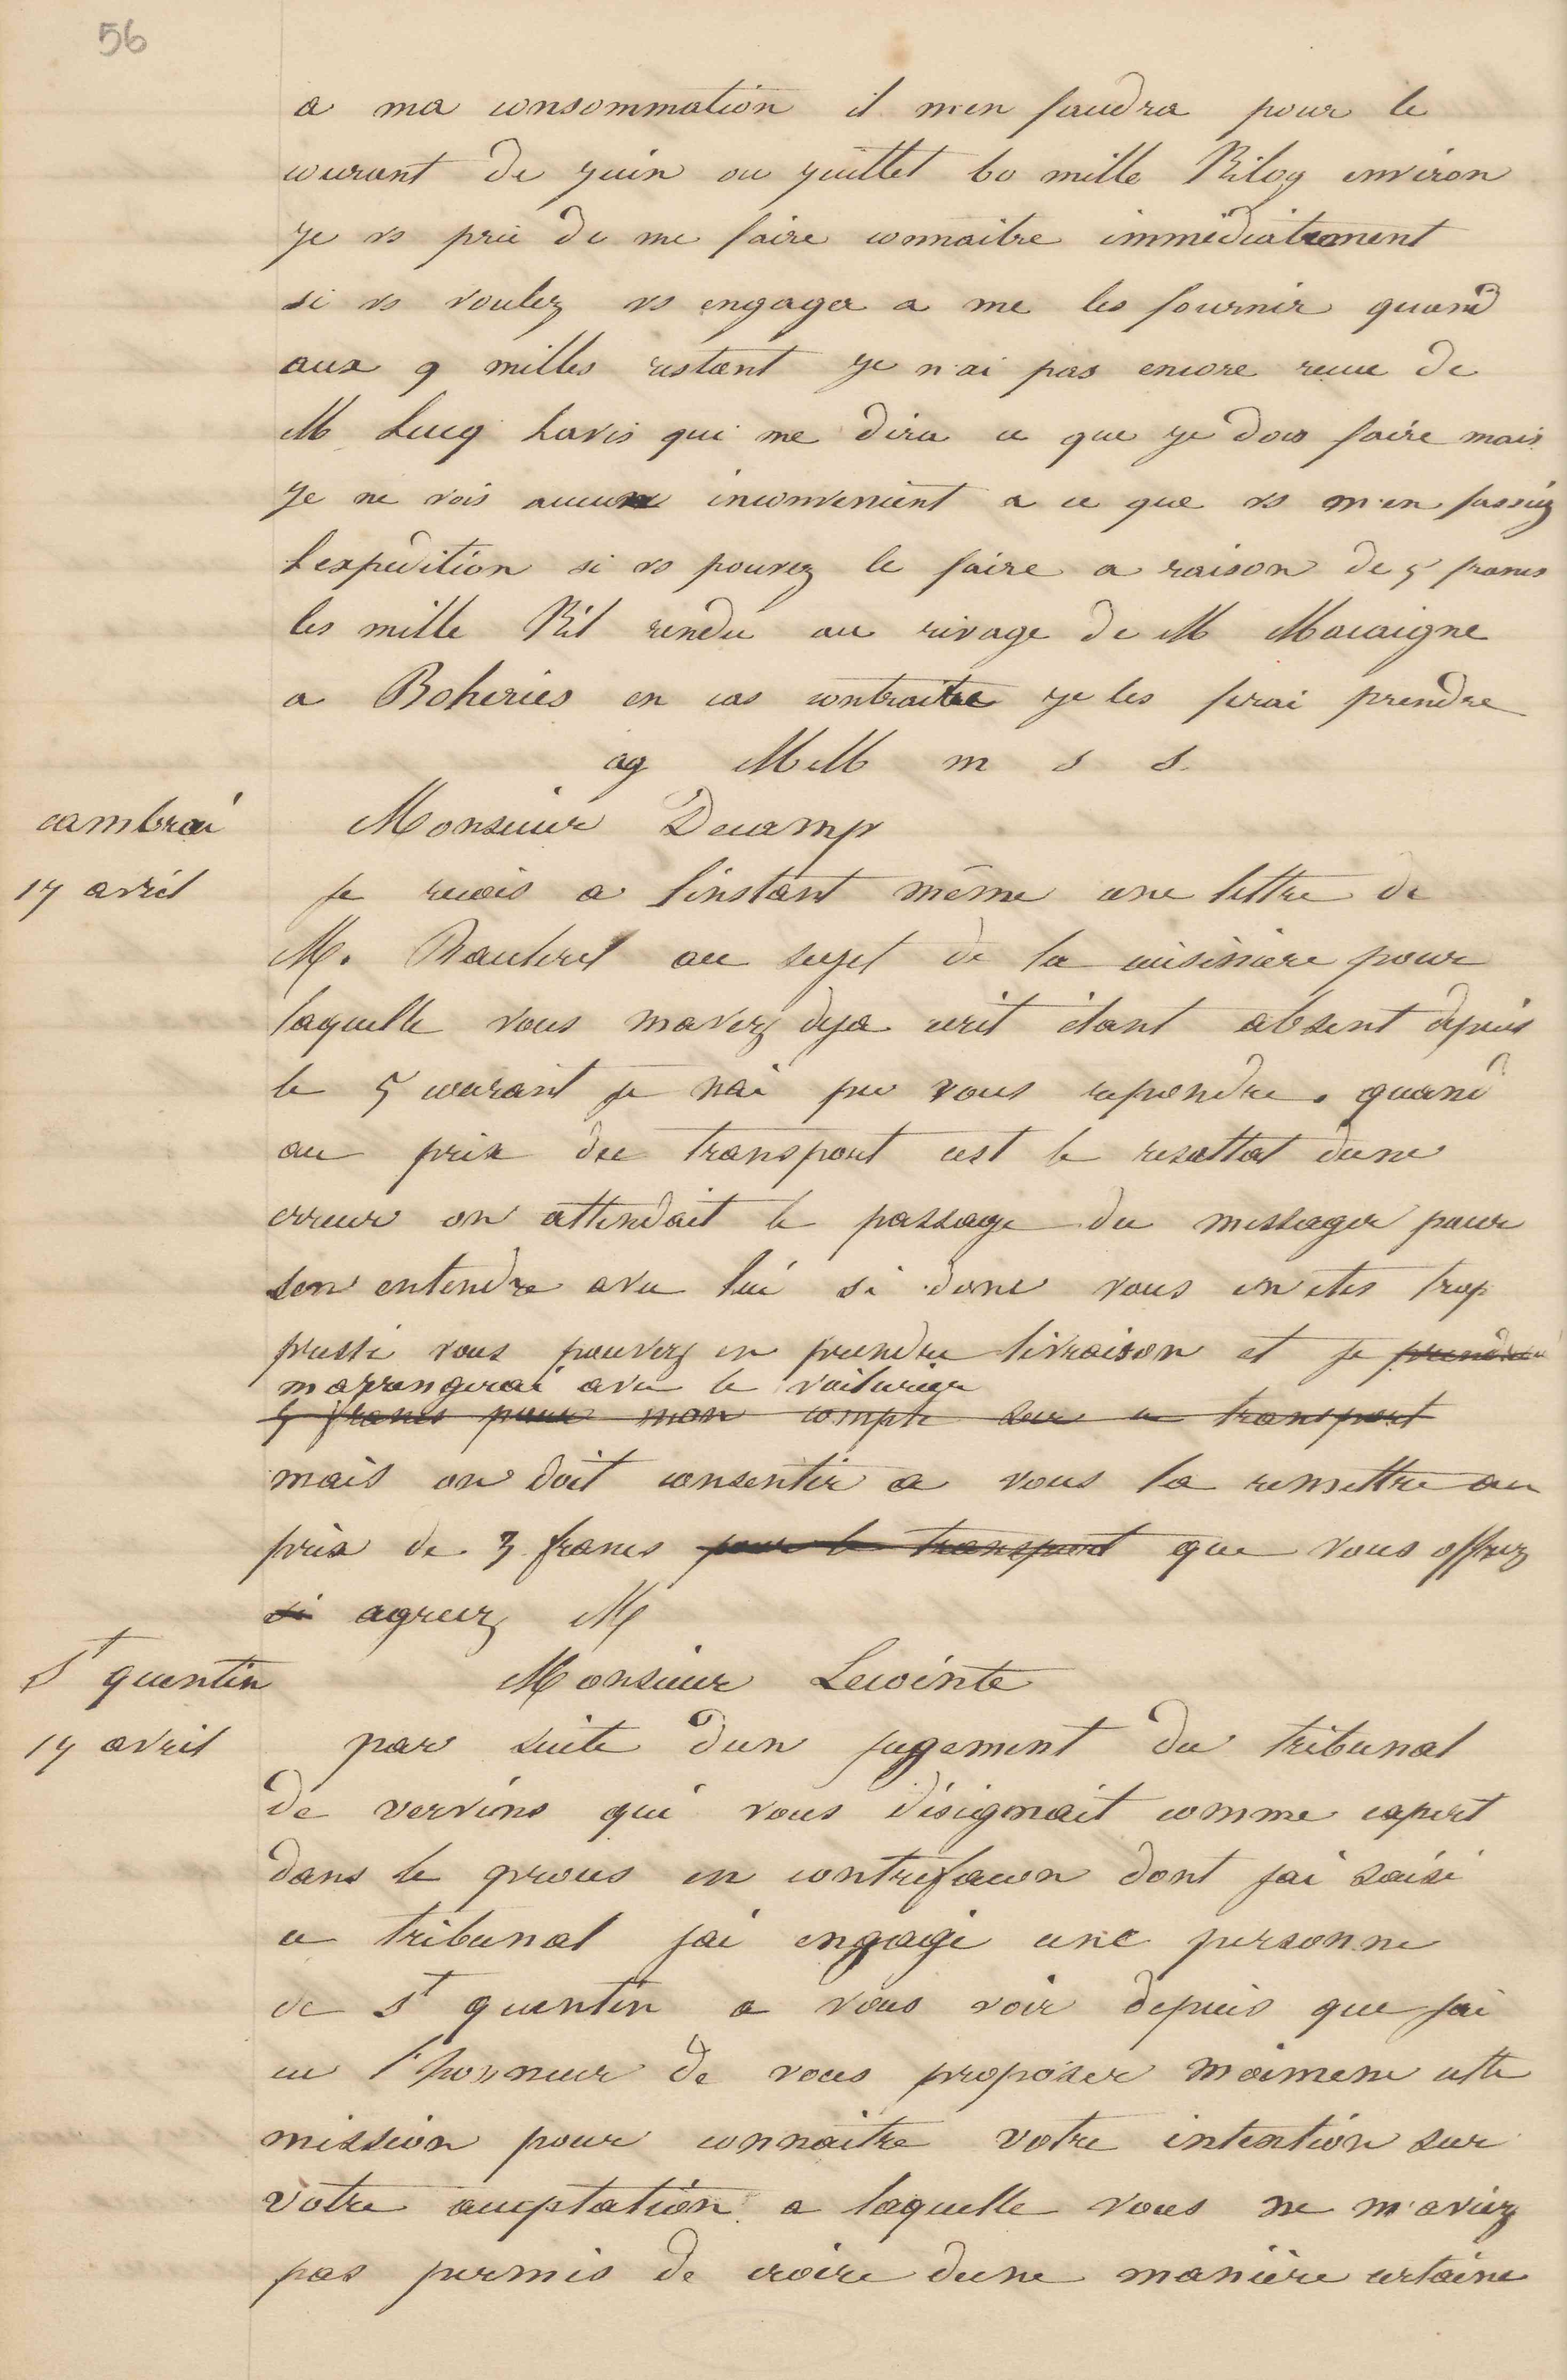 56
a ma consommation il men faudra pour le
courant de juin ou juillet 60 mille Kilog environ
je vs prie de me faire connaitre immédiatement
si vs voulez vs engager a me les fournir quand
aux 9 milles restant je n'ai pas encore recue de
M Lucq lavis qui me dira ce que je dois faire mais
je ne vois aucun inconvenient a ce que vs m'en fassiez
lexpedition si vs pouvez le faire a raison de 5 francs
les mille Kil rendu au rivage de M Macaigne
a Boheries en cas contraitre je les ferai prendre
ag MM m s s
cambrai
Monsieur Decamp
17 avril
je recois a linstant même une lettre de
M. au sujet de la cuisiniere pour
laquelle vous mavez deja ecrit étant absent depuis
le 5 courant je nai pu vous repondre. quand
au prix du transport cest le resultat dune
erreur on attendait le passage du messager pour
sen entendre avec lui si donc vous en etes trop
pressé vous pouvez en prendre livraison et je prendrai
marrangerai avec le voiturier
5 francs pour mon compte sur ce transport
mais on doit consentir a vous la remettre au
prix de 3 francs pour le transport que vous offrez
si agreez M
St quentin
Monsieur Lecointe
17 avril
par suite dun jugement du tribunal
de vervins qui vous désignait comme expert
dans le proces en contrefacon dont jai saisi
ce tribunal jai engagé une personne
de St quentin a vous voir depuis que jai
eu l'honneur de vous proposer moimeme cette
mission pour connaitre votre intention sur
votre acceptation a laquelle vous ne m'aviez
pas permis de croire dune manière certaine